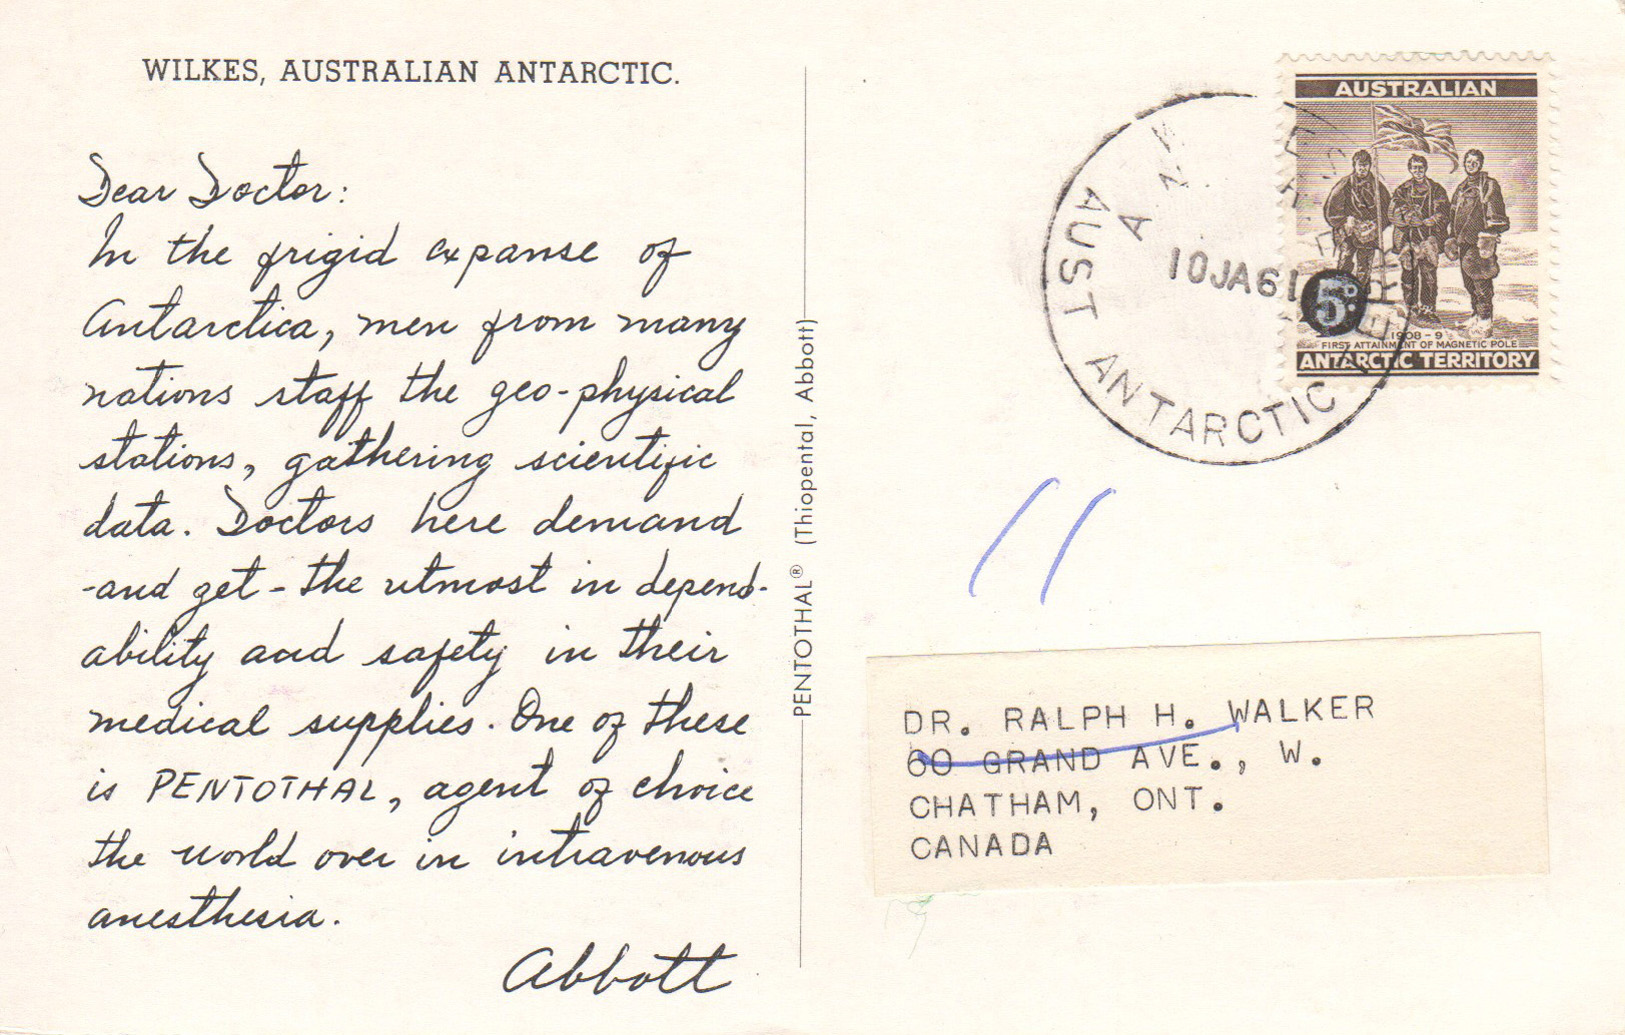 WILKES, AUSTRALIAN ANTARCTIC.
Dear Doctor:
In the frigid expanse of
Antarctica, men from many
nations staff the geo-physical
stations, gathering scientific
data. Doctors here demand
-and get- the utmost in depend-
ability and safety in their
medical supplies. One of these
is PENTOTHAL, agent of choice
the world over in intravenous
anesthesia.
Abbott
PENTOTHAL® (Thiopental, Abbott)
AUST ANTARCTIC TERR
10JA61
AUSTRALIAN
5D
1908-9
FIRST ATTAINMENT OF MAGNETIC POLE
ANTARCTIC TERRITORY
DR. RALPH H. WALKER
60 GRAND AVE., W.
CHATHAM, ONT.
CANADA